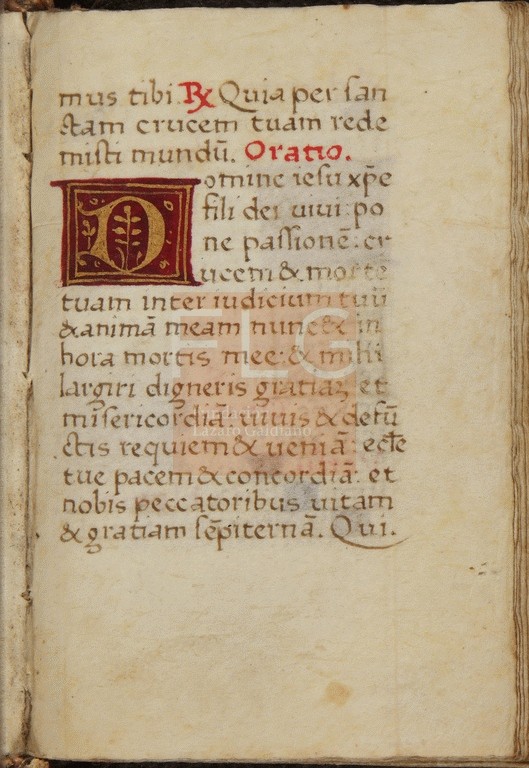 mus tibi. ℟ Quia per san
ctam crucem tuam rede
misti mundū. Oratio.
Domine iesu xp̄e
fili dei uiui: po
ne passionē: cr
ucem & morte
tuam inter iudicium tuū
& animā meam nunc & in
hora mortis mee: & mihi
largiri digneris gratiaꝫ et
misericordiā: uiuis & defū
ctis requiem & ueniā: eccl̄e
tue pacem & concordiā: et
nobis peccatoribus uitam
& gratiam sēpiternā. Qui.
FLG
Lázaro Galdiano